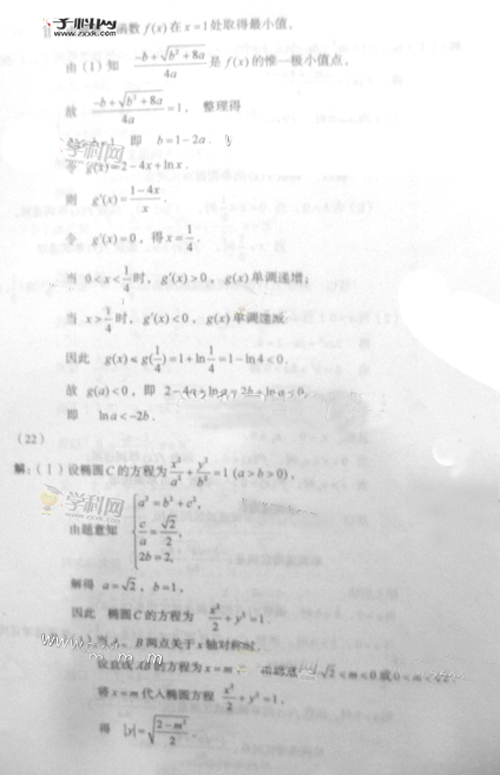 学科网
www.zxxk.com
函数 f(x) 在 x=1 处取得最小值,
由(1)知 (-b+√(b²+8a))/4a 是 f(x) 的惟一极小值点,
故 (-b+√(b²+8a))/4a=1, 整理得
=1 即 b=1-2a.
学科网
www.zxxk.com
令 g(x)=2-4x+lnx.
则 g'(x)=(1-4x)/x.
令 g'(x)=0, 得 x=1/4.
当 0<x<1/4 时, g'(x)>0, g(x) 单调递增;
当 x>1/4 时, g'(x)<0, g(x) 单调递减.
因此 g(x)≤g(1/4)=1+ln1/4=1-ln4<0.
故 g(a)<0, 即 2-4a+lna=2b+lna<0,
即 lna<-2b.
(22)
解:(Ⅰ)设椭圆C的方程为 x²/a²+y²/b²=1 (a>b>0),
学科网
www.zxxk.com
由题意知 { a²=b²+c², c/a=√2/2, 2b=2,
解得 a=√2, b=1.
因此 椭圆C的方程为 x²/2+y²=1.
B 两点关于 x 轴对称时,
设直线 AB 的方程为 x=m √2<m<0 或 0<m
将 x=m 代入椭圆方程 x²/2+y²=1,
得 |y|=√((2-m²)/2).